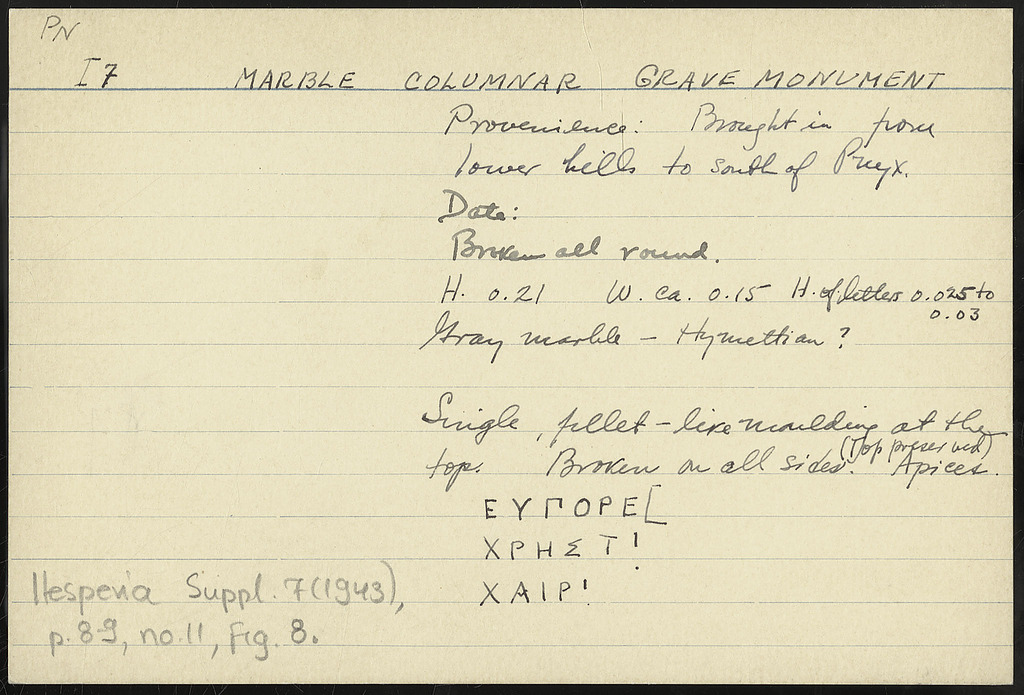 PN
I 7 MARBLE COLUMNAR GRAVE MONUMENT
Provenience: Brought in from
lower hills to south of Pnyx.
Date:
Broken all round.
H. 0.21 W. ca. 0.15 H. of letters 0.025 to
0.03
Gray marble – Hymettian?
Single, fillet-like moulding at the
top. Broken on all sides. (Top preserved) Apices.
ΕΥΠΟΡΕ[
ΧΡΗΣΤ!
ΧΑΙΡ!
Hesperia Suppl. 7 (1943),
p. 8-9, no. 11, Fig. 8.